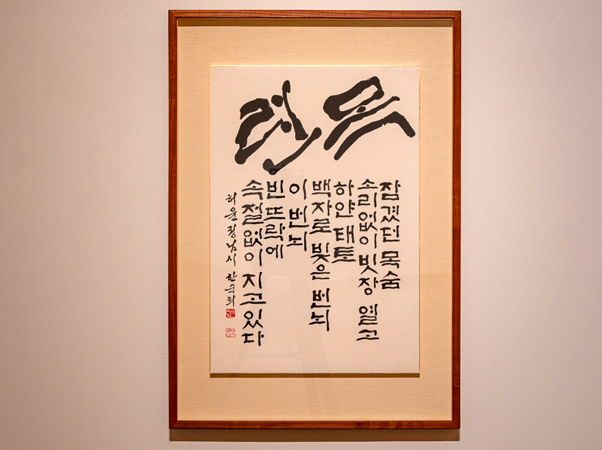 목련
잠겼던 목숨
소리없이 빗장 열고
하얀 태토
백자로 빚은 번뇌
이 번뇌
빈 뜨락에
속절없이 지고있다
허윤정님시 한숙희